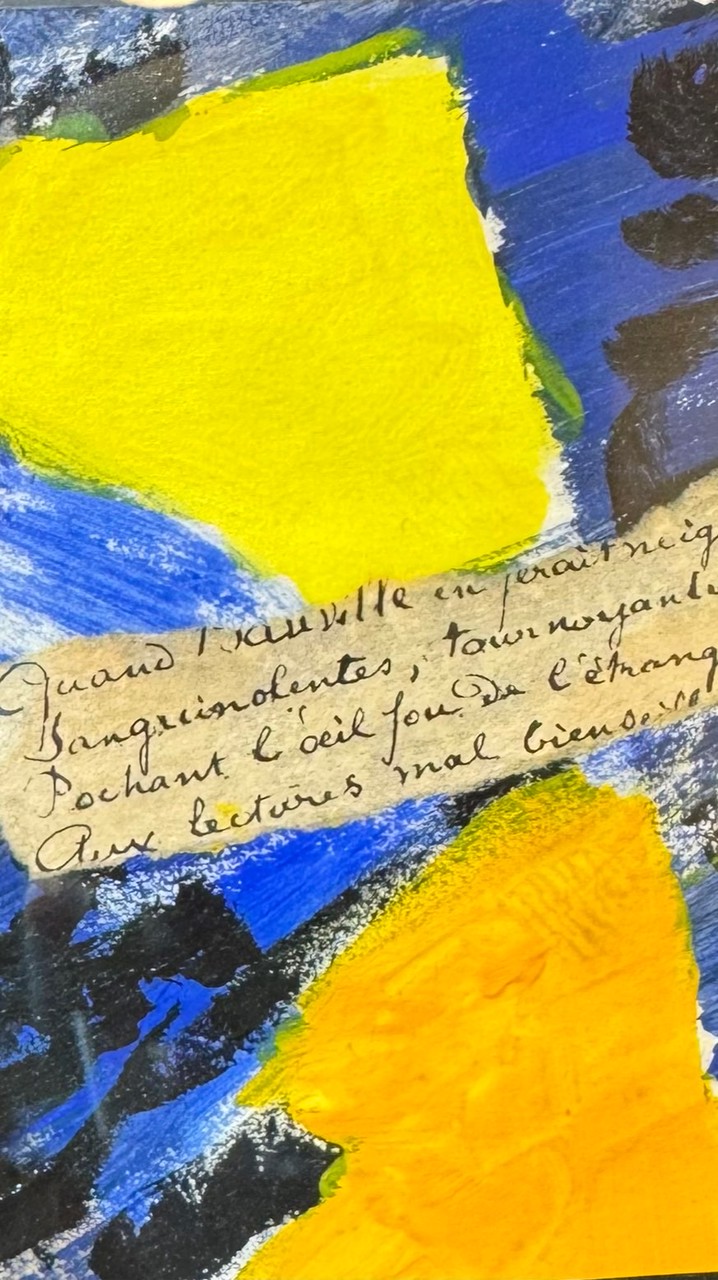 Quand Banville en ferait neig
Sanguinolentes, tournoyante
Pochant l'œil fou De l'étrang
Aux lectures mal bienveill